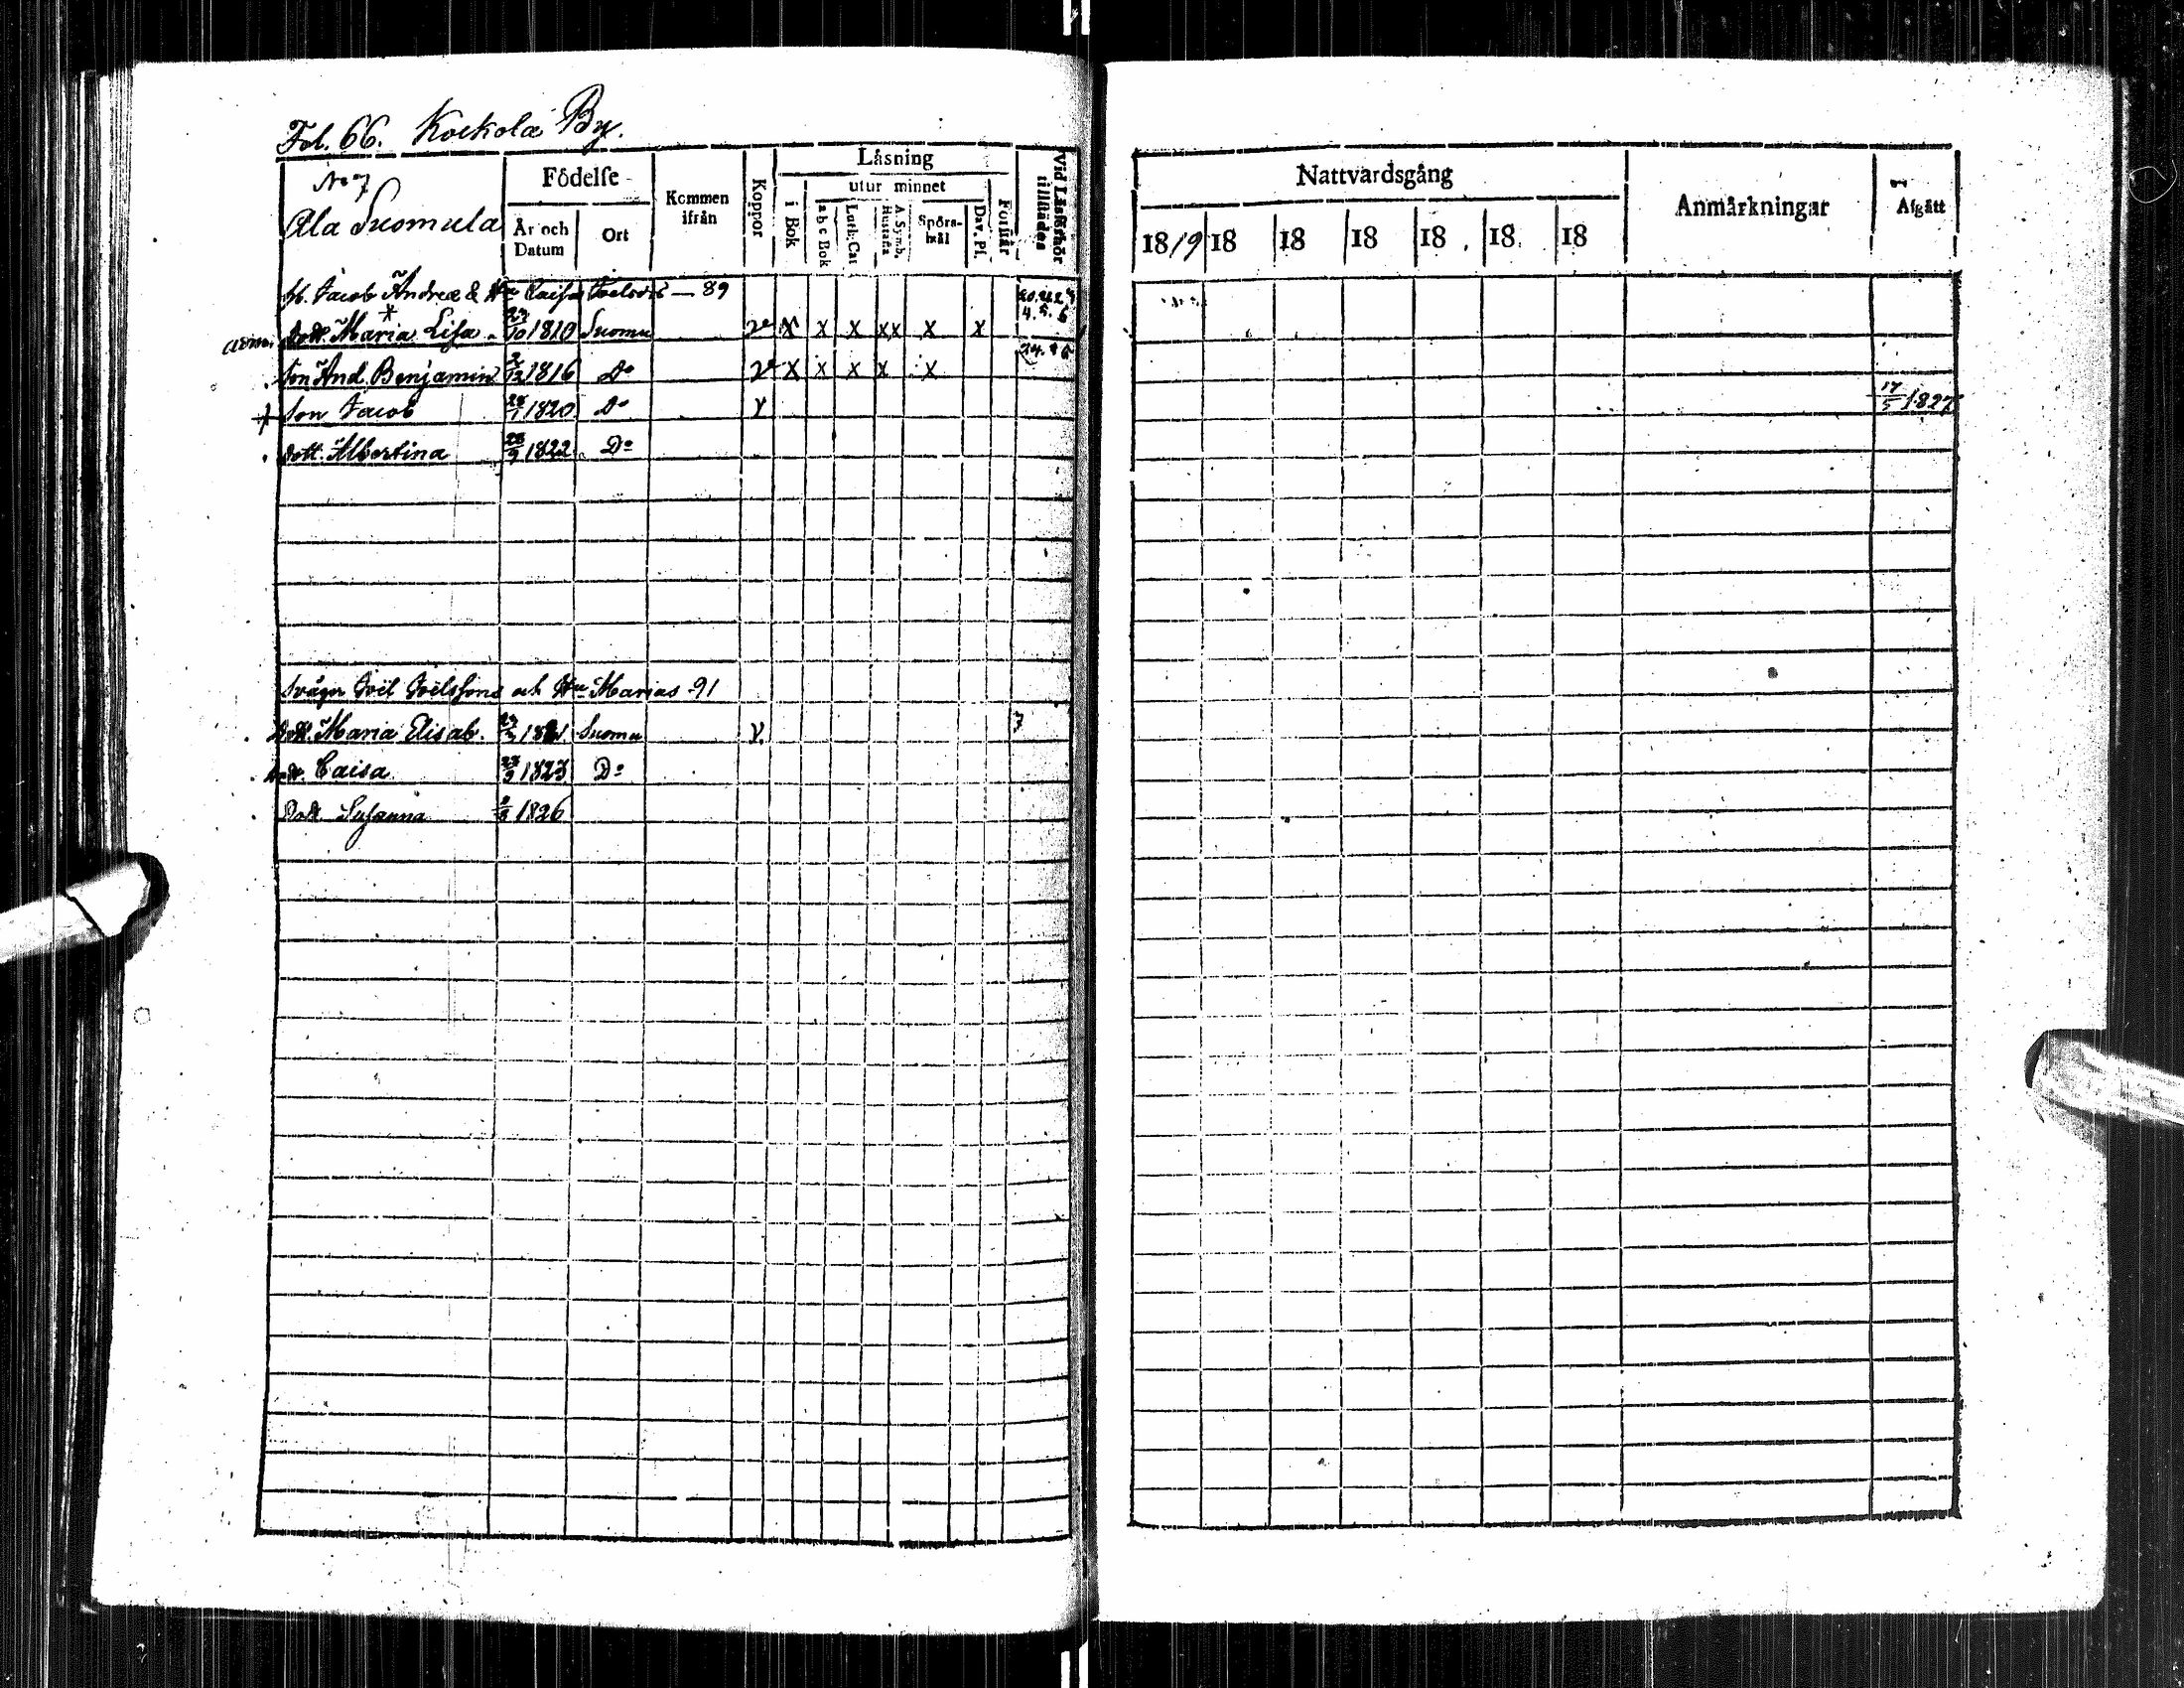 Fol. 66. Kockola By.
No 7
Ala Suomula
Födelse
År och Datum
Ort
Kommen ifrån
Koppor
Läsning
i Bok
utur minnet
a b c Bok
Luth. Cat
A. Symb. Hustafla
Spörs-mål
Dav. Ps.
Förstår
Vid Läsförhör tillstädes
Jacob Andreæ & Hu Caisa Joelsdrs — 89
Dott. Maria Lisa 23/10 1810 Suomu v x x x xx x x 4. 5. 6
Son And. Benjamin 2/12 1816 Do v x x x x x
† Son Jacob 1820 Do v 17/5 1827
Dott. Albertina 28/9 1822 Do
Svåger Joël Joëlssons och Hu Marias -91
Dott. Maria Elisab. 1821 Suomu v. 7
Dott. Caisa 1823 Do
Dott. Susanna 1826
Nattvardsgång
1819 18 18 18 18 18 18
Anmärkningar
Afgått